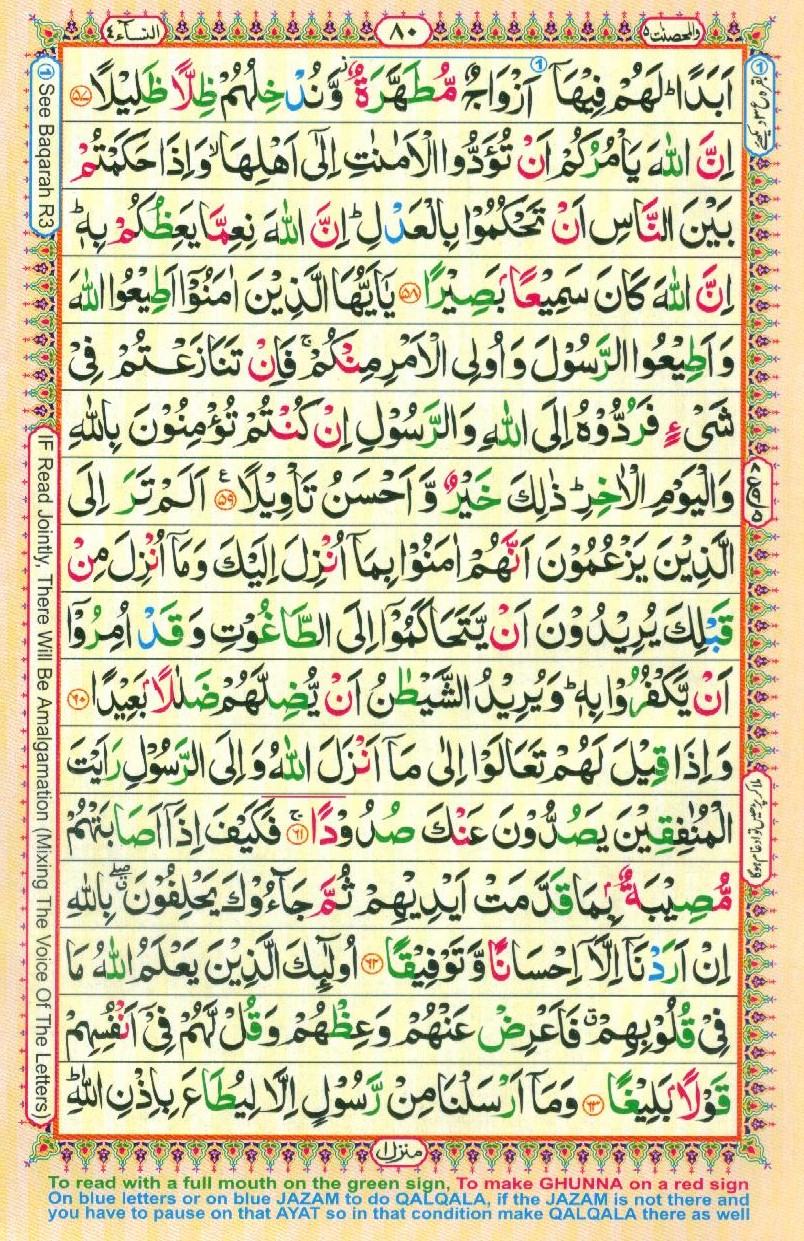 النساء ٤
٨٠
والمحصنت ٥
اَبَدًا ؕ لَهُمْ فِيْهَاۤ اَزْوَاجٌ مُّطَهَّرَةٌ ؗ وَّنُدْخِلُهُمْ ظِلًّا ظَلِيْلًا ﴿۵۷﴾
اِنَّ اللّٰهَ يَاْمُرُكُمْ اَنْ تُؤَدُّوا الْاَمٰنٰتِ اِلٰۤى اَهْلِهَا ۙ وَاِذَا حَكَمْتُمْ
بَيْنَ النَّاسِ اَنْ تَحْكُمُوْا بِالْعَدْلِ ؕ اِنَّ اللّٰهَ نِعِمَّا يَعِظُكُمْ بِهٖ ؕ
اِنَّ اللّٰهَ كَانَ سَمِيْعًۢا بَصِيْرًا ﴿۵۸﴾ يٰۤاَيُّهَا الَّذِيْنَ اٰمَنُوْۤا اَطِيْعُوا اللّٰهَ
وَاَطِيْعُوا الرَّسُوْلَ وَاُولِى الْاَمْرِ مِنْكُمْ ۚ فَاِنْ تَنَازَعْتُمْ فِىْ
شَىْءٍ فَرُدُّوْهُ اِلَى اللّٰهِ وَالرَّسُوْلِ اِنْ كُنْتُمْ تُؤْمِنُوْنَ بِاللّٰهِ
وَالْيَوْمِ الْاٰخِرِ ؕ ذٰلِكَ خَيْرٌ وَّاَحْسَنُ تَاْوِيْلًا ﴿۵۹﴾ ع اَلَمْ تَرَ اِلَى
الَّذِيْنَ يَزْعُمُوْنَ اَنَّهُمْ اٰمَنُوْا بِمَاۤ اُنْزِلَ اِلَيْكَ وَمَاۤ اُنْزِلَ مِنْ
قَبْلِكَ يُرِيْدُوْنَ اَنْ يَّتَحَاكَمُوْۤا اِلَى الطَّاغُوْتِ وَقَدْ اُمِرُوْۤا
اَنْ يَّكْفُرُوْا بِهٖ ؕ وَيُرِيْدُ الشَّيْطٰنُ اَنْ يُّضِلَّهُمْ ضَلٰلًۢا بَعِيْدًا ﴿۶۰﴾
وَاِذَا قِيْلَ لَهُمْ تَعَالَوْا اِلٰى مَاۤ اَنْزَلَ اللّٰهُ وَاِلَى الرَّسُوْلِ رَاَيْتَ
الْمُنٰفِقِيْنَ يَصُدُّوْنَ عَنْكَ صُدُوْدًا ۚ ﴿۶۱﴾ فَكَيْفَ اِذَاۤ اَصَابَتْهُمْ
مُّصِيْبَةٌۢ بِمَا قَدَّمَتْ اَيْدِيْهِمْ ثُمَّ جَآءُوْكَ يَحْلِفُوْنَ ۖ ق بِاللّٰهِ
اِنْ اَرَدْنَاۤ اِلَّاۤ اِحْسَانًا وَّتَوْفِيْقًا ﴿۶۲﴾ اُولٰٓئِكَ الَّذِيْنَ يَعْلَمُ اللّٰهُ مَا
فِىْ قُلُوْبِهِمْ ۗ فَاَعْرِضْ عَنْهُمْ وَعِظْهُمْ وَقُلْ لَّهُمْ فِىْۤ اَنْفُسِهِمْ
قَوْلًۢا بَلِيْغًا ﴿۶۳﴾ وَمَاۤ اَرْسَلْنَا مِنْ رَّسُوْلٍ اِلَّا لِيُطَاعَ بِاِذْنِ اللّٰهِ ؕ
منزل ١
① See Baqarah R3
IF Read Jointly, There Will Be Amalgamation (Mixing The Voice Of The Letters)
To read with a full mouth on the green sign, To make GHUNNA on a red sign
On blue letters or on blue JAZAM to do QALQALA, if the JAZAM is not there and
you have to pause on that AYAT so in that condition make QALQALA there as well